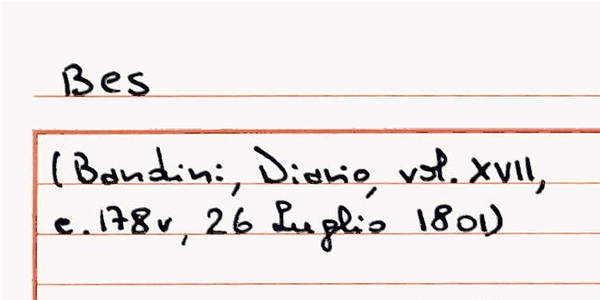 Bes
(Bandini, Diario, vol. XVII,
c. 178v, 26 Luglio 1801)